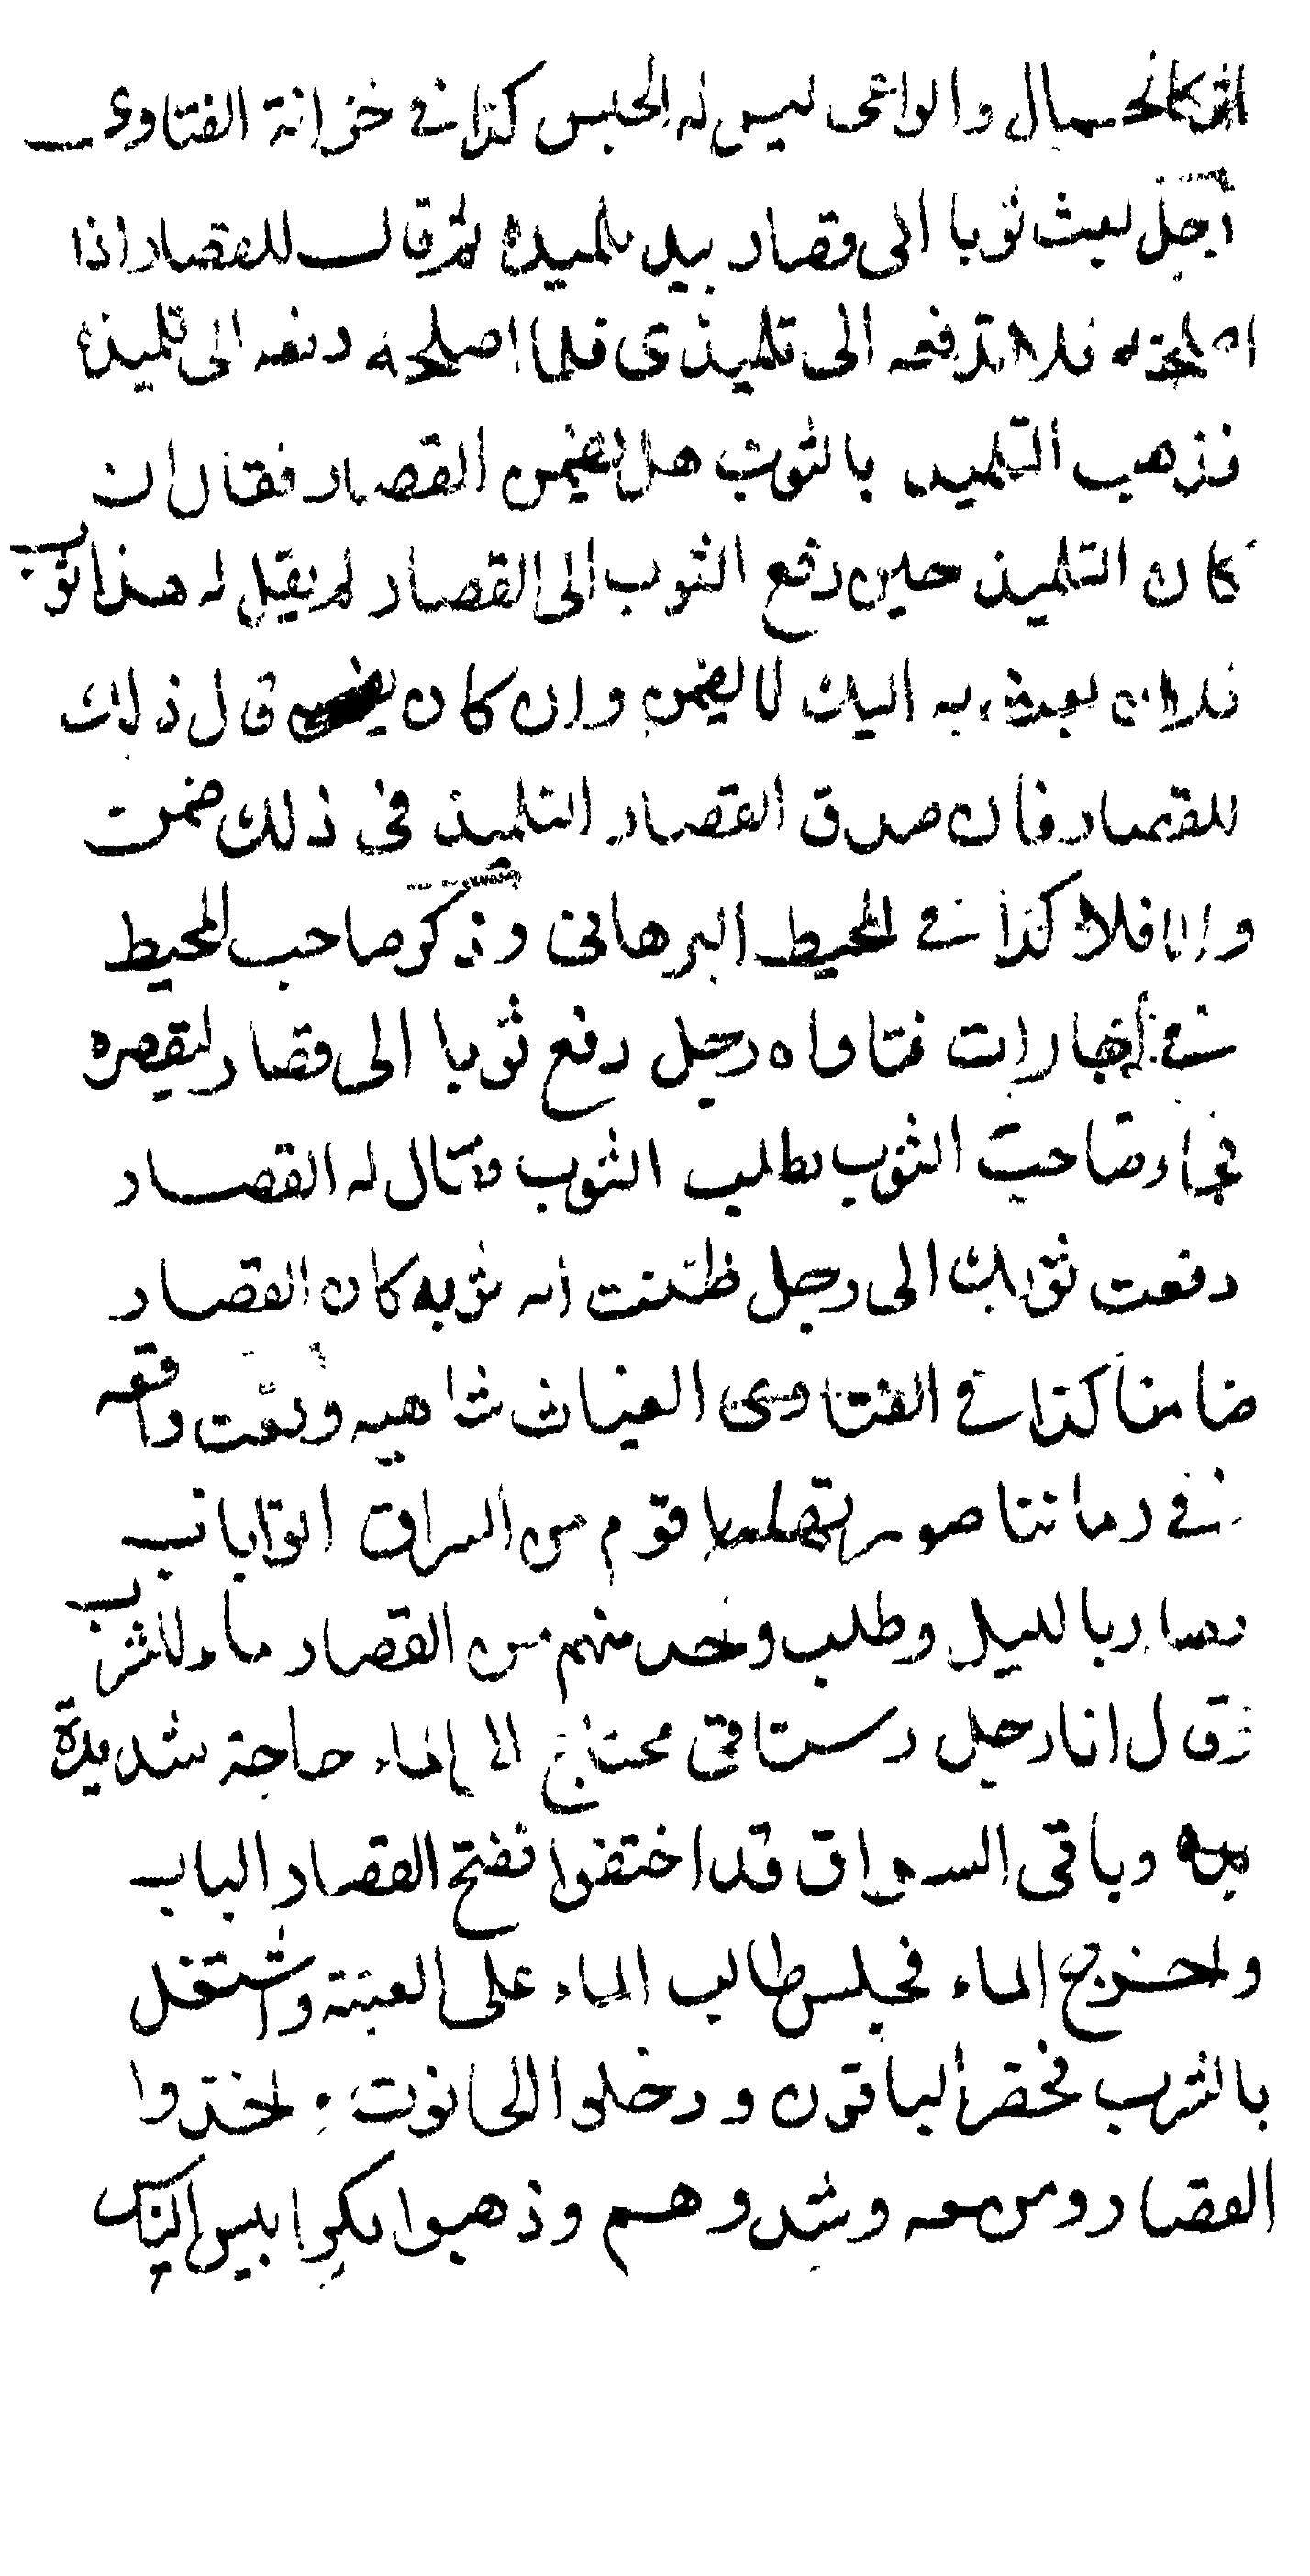 كالحمال والراعى ليس له الحبس كذا فى خزانة الفتاوى
رجل بعث ثوبا الى قصار بيد تلميذه ثم قال للقصار اذا
اصلحته فلا تدفعه الى تلميذى فلما اصلحه دفعه الى تلميذه
فذهب التلميذ بالثوب هل يضمن القصار فقال ان
كان التلميذ حين دفع الثوب الى القصار لم يقل له هذا ثوب
فلان بعث به اليك لا يضمن وان كان قال ذلك
للقصار فان صدق القصار التلميذ فى ذلك ضمن
والا فلا كذا فى المحيط البرهانى وذكر صاحب المحيط
فى اجارات فتاواه رجل دفع ثوبا الى قصار ليقصره
فجاء صاحب الثوب يطلب الثوب فقال له القصار
دفعت ثوبك الى رجل ظننت انه ثوبه كان القصار
ضامنا كذا فى الفتاوى الغياث شاهيه وقعت واقعه
فى زماننا صورتها قوم من السراق اتوا باب
قصار بالليل وطلب وحد منهم من القصار ماء للشرب
وقال انا رجل رستاقى محتاج الى الماء حاجة شديدة
وباقى السراق قد اختفوا ففتح القصار الباب
واخرج الماء فجلس طالب الماء على العتبة واشتغل
بالشرب فحضر الباقون ودخلوا الحانوت واخذوا
القصار ومن معه وشدوهم وذهبوا بكرابيس الناس